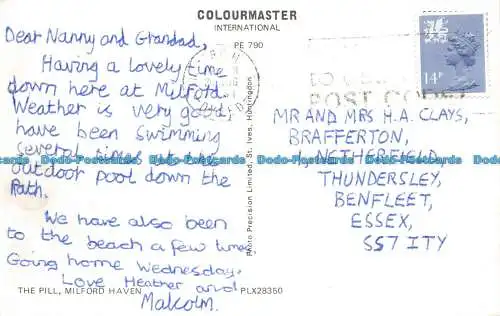 COLOURMASTER
INTERNATIONAL
PE 790
Dear Nanny and Grandad,
Having a lovely time
down here at Milford.
Weather is very good,
have been swimming
several times at the
outdoor pool down the
Path.
We have also been
to the beach a few times,
Going home Wednesday,
Love Heather and
Malcolm.
THE PILL, MILFORD HAVEN
PLX28350
Photo Precision Limited, St. Ives, Huntingdon
14P
POST CODE
MR AND MRS H.A. CLAYS,
BRAFFERTON,
1, NETHERFIELD,
THUNDERSLEY,
BENFLEET,
ESSEX,
SS7 1TY
Dado-Postcards